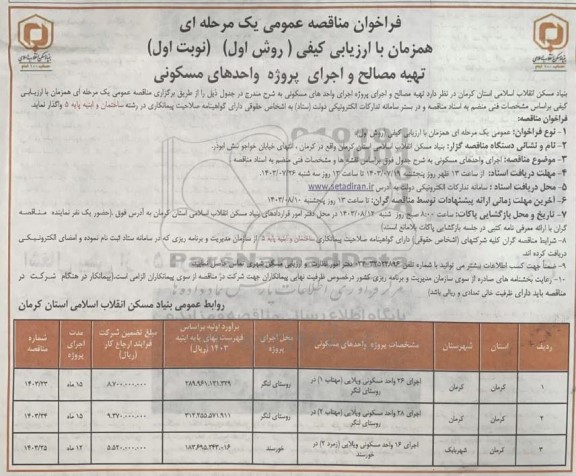 فراخوان مناقصه عمومی یک مرحله ای
همزمان با ارزیابی کیفی ( روش اول) (نوبت اول)
تهیه مصالح و اجرای پروژه واحدهای مسکونی
بنیاد مسکن انقلاب اسلامی استان کرمان در نظر دارد تهیه مصالح و اجرای پروژه اجرای واحد های مسکونی به شرح مندرج در جدول ذیل را از طریق برگزاری مناقصه عمومی یک مرحله ای همزمان با ارزیابی
کیفی براساس مشخصات فنی منضم به اسناد مناقصه و در بستر سامانه تدارکات الکترونیکی دولت (ستاد) به اشخاص حقوقی دارای گواهینامه صلاحیت پیمانکاری در رشته ساختمان و ابنیه پایه ۵ واگذار نماید.
فراخوان مناقصه:
۱- نوع فراخوان: عمومی یک مرحله ای همزمان با ارزیابی کیفی (روش اول)
۲- نام و نشانی دستگاه مناقصه گزار: بنیاد مسکن انقلاب اسلامی استان کرمان واقع در کرمان ، انتهای خیابان خواجو نبش ابوذر.
۳- موضوع مناقصه: اجرای واحدهای مسکونی به شرح جدول فوق براساس نقشه ها و مشخصات فنی منضم به اسناد مناقصه
۴- مهلت دریافت اسناد: از ساعت ۱۳ ظهر روز پنجشنبه ۱۴۰۳/۰۷/۱۹ تا ساعت ۱۳ روز سه شنبه ۱۴۰۳/۰۷/۲۶
۵- محل دریافت اسناد : سامانه تدارکات الکترونیکی دولت به آدرس www.setadiran.ir
۶- آخرین مهلت زمانی ارائه پیشنهادات توسط مناقصه گران: تا ساعت ۱۳ روز پنجشنبه ۱۴۰۳/۰۸/۱۰
۷- تاریخ و محل بازگشایی پاکات: ساعت ۸:۰۰ صبح روز شنبه ۱۴۰۳/۰۸/۱۲ در محل دفتر امور قراردادهای بنیاد مسکن انقلاب اسلامی استان کرمان به آدرس فوق (حضور یک نفر نماینده مناقصه
گران با ارائه معرفی نامه کتبی در جلسه بازگشایی پاکات بلامانع است)
۸- شرایط مناقصه گران کلیه شرکتهای (اشخاص حقوقی) دارای گواهینامه صلاحیت پیمانکاری ساختمان و ابنیه پایه ۵ از سازمان مدیریت و برنامه ریزی که در سامانه ستاد ثبت نام نموده و امضای الکترونیکی
دریافت کرده اند
۹- ضمناً جهت کسب اطلاعات بیشتر می توانید با شماره تلفن
۱۰- رعایت بخشنامه های صادره از سوی سازمان مدیریت و برنامه ریزی کشور درخصوص ظرفیت نهایی پیمانکاران جهت شرکت در مناقصه از سوی پیمانکاران الزامی است.(پیمانکار در هنگام شرکت در
مناقصه باید دارای ظرفیت خالی تعدادی و ریالی باشد)
روابط عمومی بنیاد مسکن انقلاب اسلامی استان کرمان
ردیف استان شهرستان مشخصات پروژه واحدهای مسکونی محل اجرای پروژه برآورد اولیه براساس فهرست بهای پایه ابنیه ۱۴۰۳ (ریال) مبلغ تضمین شرکت در فرایند ارجاع کار (ریال) مدت اجرای پروژه شماره مناقصه
۱ کرمان کرمان اجرای ۲۶ واحد مسکونی ویلایی (مهتاب ۱) در روستای لنگر روستای لنگر ۲۸۹.۹۶۱.۱۲۱.۳۲۹ ۸.۷۰۰.۰۰۰.۰۰۰ ۱۵ ماه ۱۴۰۳/۲۳
۲ کرمان کرمان اجرای ۲۸ واحد مسکونی ویلایی (مهتاب ۲) در روستای لنگر روستای لنگر ۳۱۲.۲۵۵.۵۷۱.۹۱۱ ۹.۳۷۰.۰۰۰.۰۰۰ ۱۵ ماه ۱۴۰۳/۲۴
۳ کرمان شهربابک اجرای ۱۶ واحد مسکونی ویلایی (زمرد ۲) در خورسند خورسند ۱۸۳.۶۹۵.۲۴۳.۰۱۶ ۵.۵۲۰.۰۰۰.۰۰۰ ۱۲ ماه ۱۴۰۳/۲۵